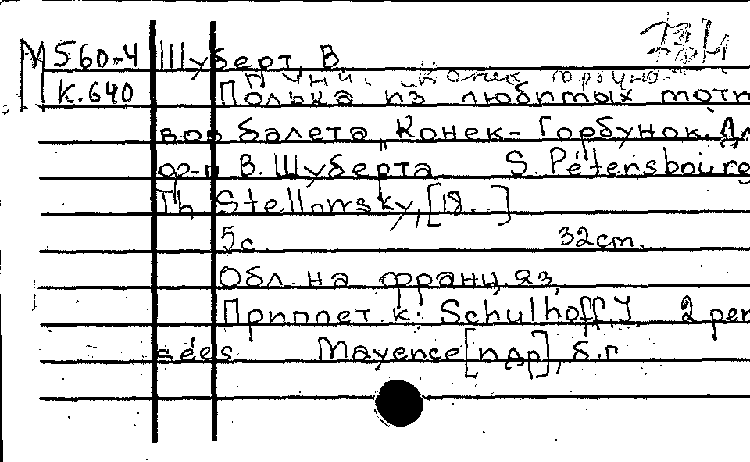 734
М 560-4 Шуберт, В.
Пуни. Конек горбуно
К.640 Полька из любимых моти
вов балета „Конек-Горбунок. Дл
ф-п В. Шуберта S. Pétersbourg
Th Stellowsky, [18..]
5с. 32cm.
Обл. на франц. яз.
Приплет. к: Schulhoff J. 2 pen
sées Mayence [и др], б.г